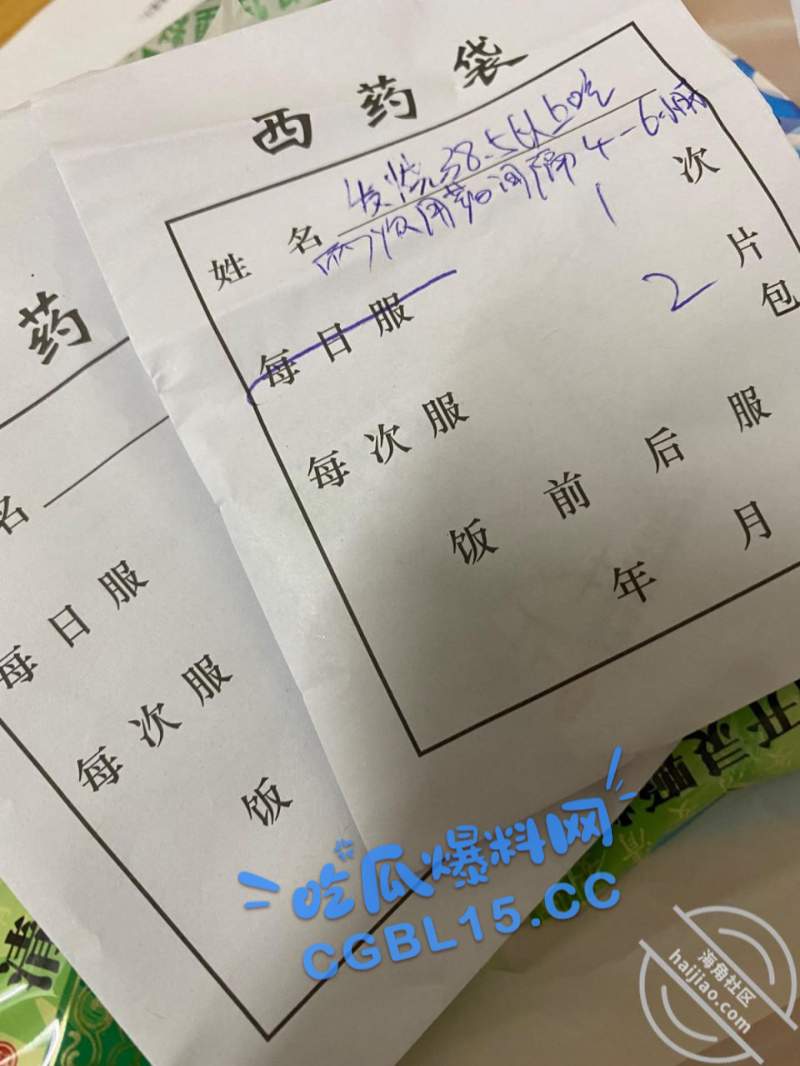 西药袋
发烧38.5以上吃
姓名
两次用药间隔4-6小时
每日服 1 次
每次服 2 片
包
饭前后服
年 月
药
名
每日服
每次服
饭
开灵颗
清
清
吃瓜爆料网
CGBL15.CC
海角社区
haijiao.com